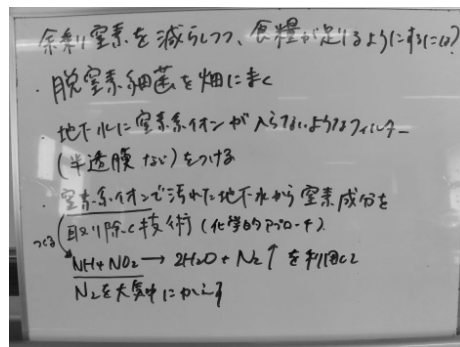 余剰窒素を減らしつつ、食糧が足りるようにするには?
・脱窒素細菌を畑にまく
地下水に窒素系イオンが入らないようなフィルター
(半透膜など)をつける
・窒素系イオンで汚れた地下水から窒素成分を
取り除く技術(化学的アプローチ)
つくる
NH4NO2 → 2H2O + N2↑ を利用して
N2を大気中にかえす